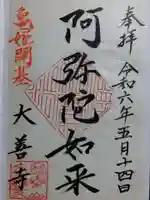 奉拝 令和六年五月十四日
阿弥陀如来
開基
大善寺